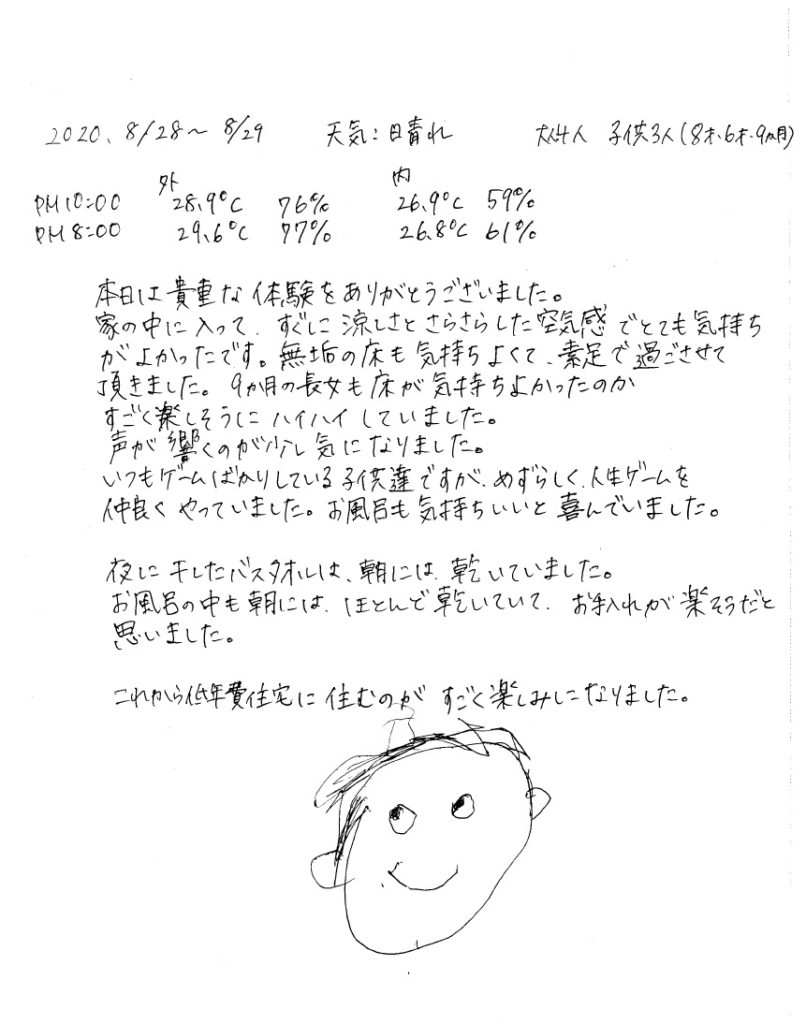 2020. 8/28～8/29 天気:晴れ 大人4人 子供3人(8才、6才、9ヵ月)
外 内
PM10:00 28.9℃ 76% 26.9℃ 59%
PM8:00 29.6℃ 77% 26.8℃ 61%
本日は貴重な体験をありがとうございました。
家の中に入って、すぐに涼しさとさらさらした空気感でとても気持ち
がよかったです。無垢の床も気持ちよくて、素足で過ごさせて
頂きました。9か月の長女も床が気持ちよかったのか
すごく楽しそうにハイハイしていました。
声が響くのが少し気になりました。
いつもゲームばかりしている子供達ですが、めずらしく、人生ゲームを
仲良くやっていました。お風呂も気持ちいいと喜んでいました。
夜に干したバスタオルは、朝には、乾いていました。
お風呂の中も朝には、ほとんど乾いていて、お手入れが楽そうだと
思いました。
これから低年費住宅に住むのがすごく楽しみになりました。